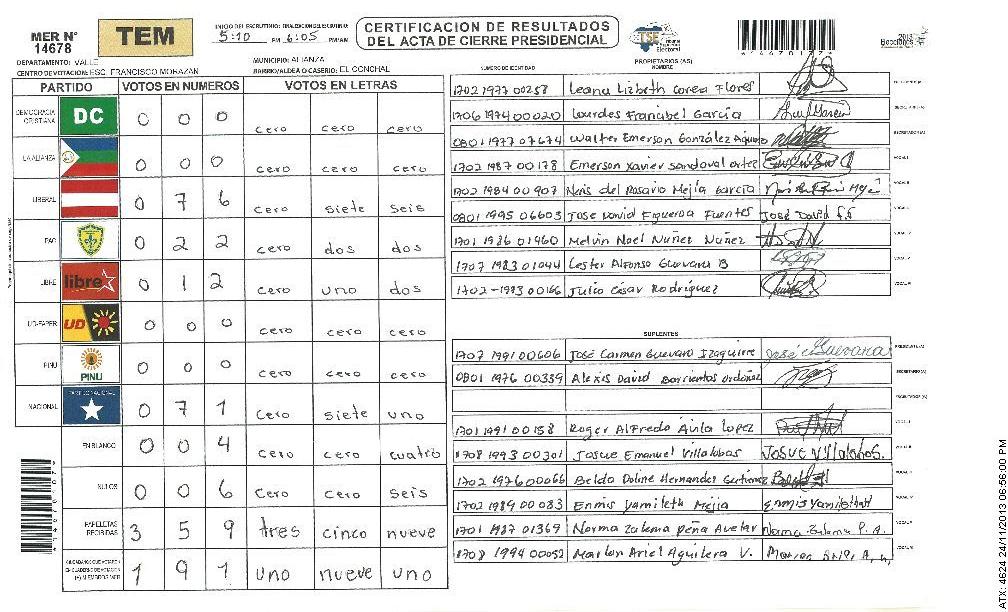 MER Nº 14678
TEM
INICIO DEL ESCRUTINIO: FINALIZACION DEL ESCRUTINIO:
5:10 PM 6:05 PM/AM
CERTIFICACION DE RESULTADOS
DEL ACTA DE CIERRE PRESIDENCIAL
TSE Tribunal Supremo Electoral
Elecciones 2013
DEPARTAMENTO: VALLE
MUNICIPIO: ALIANZA
CENTRO DE VOTACION: ESC. FRANCISCO MORAZAN
BARRIO/ALDEA O CASERIO: EL CONCHAL
PARTIDO VOTOS EN NUMEROS VOTOS EN LETRAS
DEMOCRACIA CRISTIANA DC 0 0 0 cero cero cero
LA ALIANZA 0 0 0 cero cero cero
LIBERAL 0 7 6 cero siete seis
PAC 0 2 2 cero dos dos
LIBRE libre 0 1 2 cero uno dos
UD-FAPER UD 0 0 0 cero cero cero
PINU PINU 0 0 0 cero cero cero
NACIONAL 0 7 1 cero siete uno
EN BLANCO 0 0 4 cero cero cuatro
NULOS 0 0 6 cero cero seis
PAPELETAS RECIBIDAS 3 5 9 tres cinco nueve
1 9 1 uno nueve uno
NUMERO DE IDENTIDAD
PROPIETARIOS (AS)
NOMBRE
1702 1977 00258 Leana Lizbeth Corea Flores
1706 1974 00020 Lourdes Francibel García
0801 1977 07674 Walter Emerson González
1702 1987 00178 Emerson Xavier Sandoval Ortez
1702 1984 00907 Neris del Rosario Mejía García
0801 1995 06603 Jose David Figueroa Fuentes José David F.F
1701 1986 01460 Melvin Noel Nuñez Nuñez
1707 1983 01044 Lester Alfonso Guevara B
1702-1993 00166 Julio César Rodríguez
SUPLENTES
1707 1991 00606 José Carmen Guevara Izaguirre José C Guevara
0801 1976 00339 Alexis David Barrientos Ordoñez
1701 1991 00158 Roger Alfredo Ávila Lopez
1708 1993 00301 Josue Emanuel Villalobos Josue Villalobos.
1702 1976 00066 Beldo Doline Hernandez Gutierrez
1702 1989 00083 Ennis Yamileth Mejia
1701 1987 01369 Norma Zulema Peña Avelar Norma Zulema P. A.
1708 1994 00052 Marlon Ariel Aguilera V.
ATX: 4624 24/11/2013 06:56:00 PM